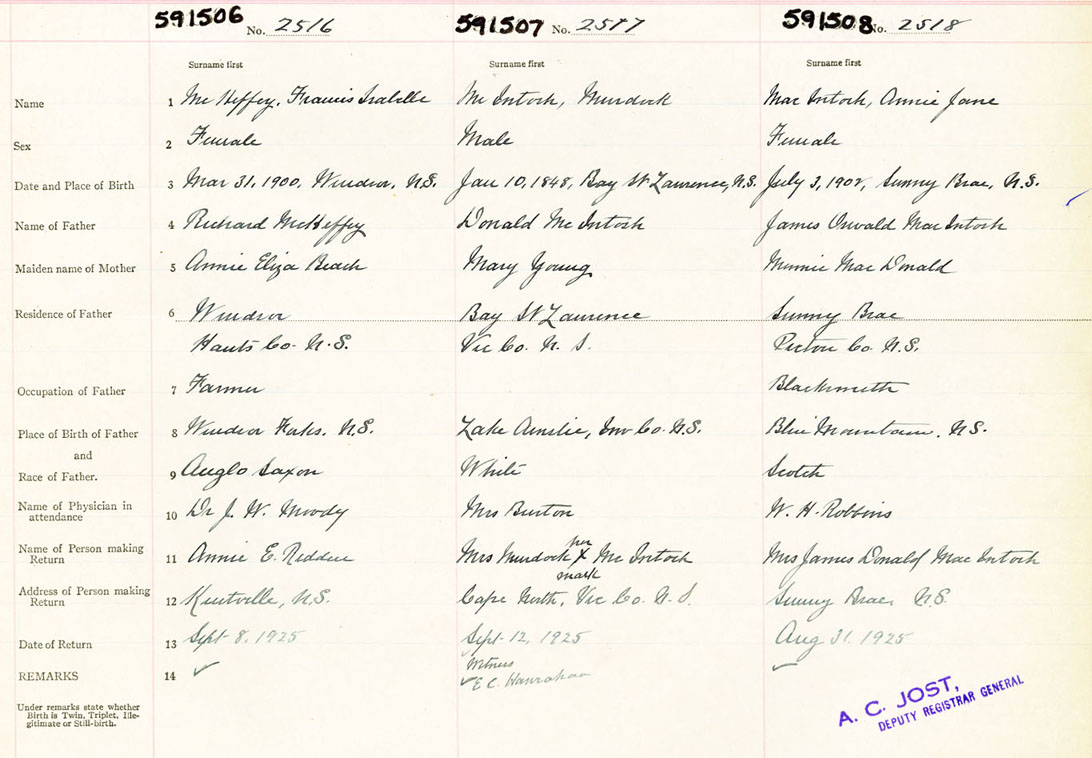 591506 No. 2516 591507 No. 2517 591508 No. 2518
Surname first Surname first Surname first
Name 1 McHeffey, Francis Isabelle McIntosh, Murdock MacIntosh, Annie Jane
Sex 2 Female Male Female
Date and Place of Birth 3 Mar 31, 1900, Windsor, N.S. Jan 10, 1848, Bay St Lawrence, N.S. July 3, 1902, Sunny Brae, N.S.
Name of Father 4 Richard McHeffey Donald McIntosh James Oswald MacIntosh
Maiden name of Mother 5 Annie Eliza Beach Mary Young Minnie MacDonald
Residence of Father 6 Windsor Bay St Lawrence Sunny Brae
Hants Co. N.S. Vic Co. N.S. Pictou Co. N.S.
Occupation of Father 7 Farmer Blacksmith
Place of Birth of Father 8 Windsor Forks, N.S. Lake Ainslie, Inv Co. N.S. Blue Mountain, N.S.
and
Race of Father. 9 Anglo Saxon White Scotch
Name of Physician in attendance 10 Dr J. W. Moody Mrs Burton W. H. Robbins
Name of Person making Return 11 Annie E. Redden Mrs Murdock her X mark McIntosh Mrs James Donald MacIntosh
Address of Person making Return 12 Kentville, N.S. Cape North, Vic Co. N.S. Sunny Brae N.S.
Date of Return 13 Sept 8, 1925 Sept 12, 1925 Aug 31, 1925
REMARKS 14 ✓ Witness ✓
✓ E C. Hanrahan
Under remarks state whether
Birth is Twin, Triplet, Ille-
gitimate or Still-birth.
A. C. JOST,
DEPUTY REGISTRAR GENERAL